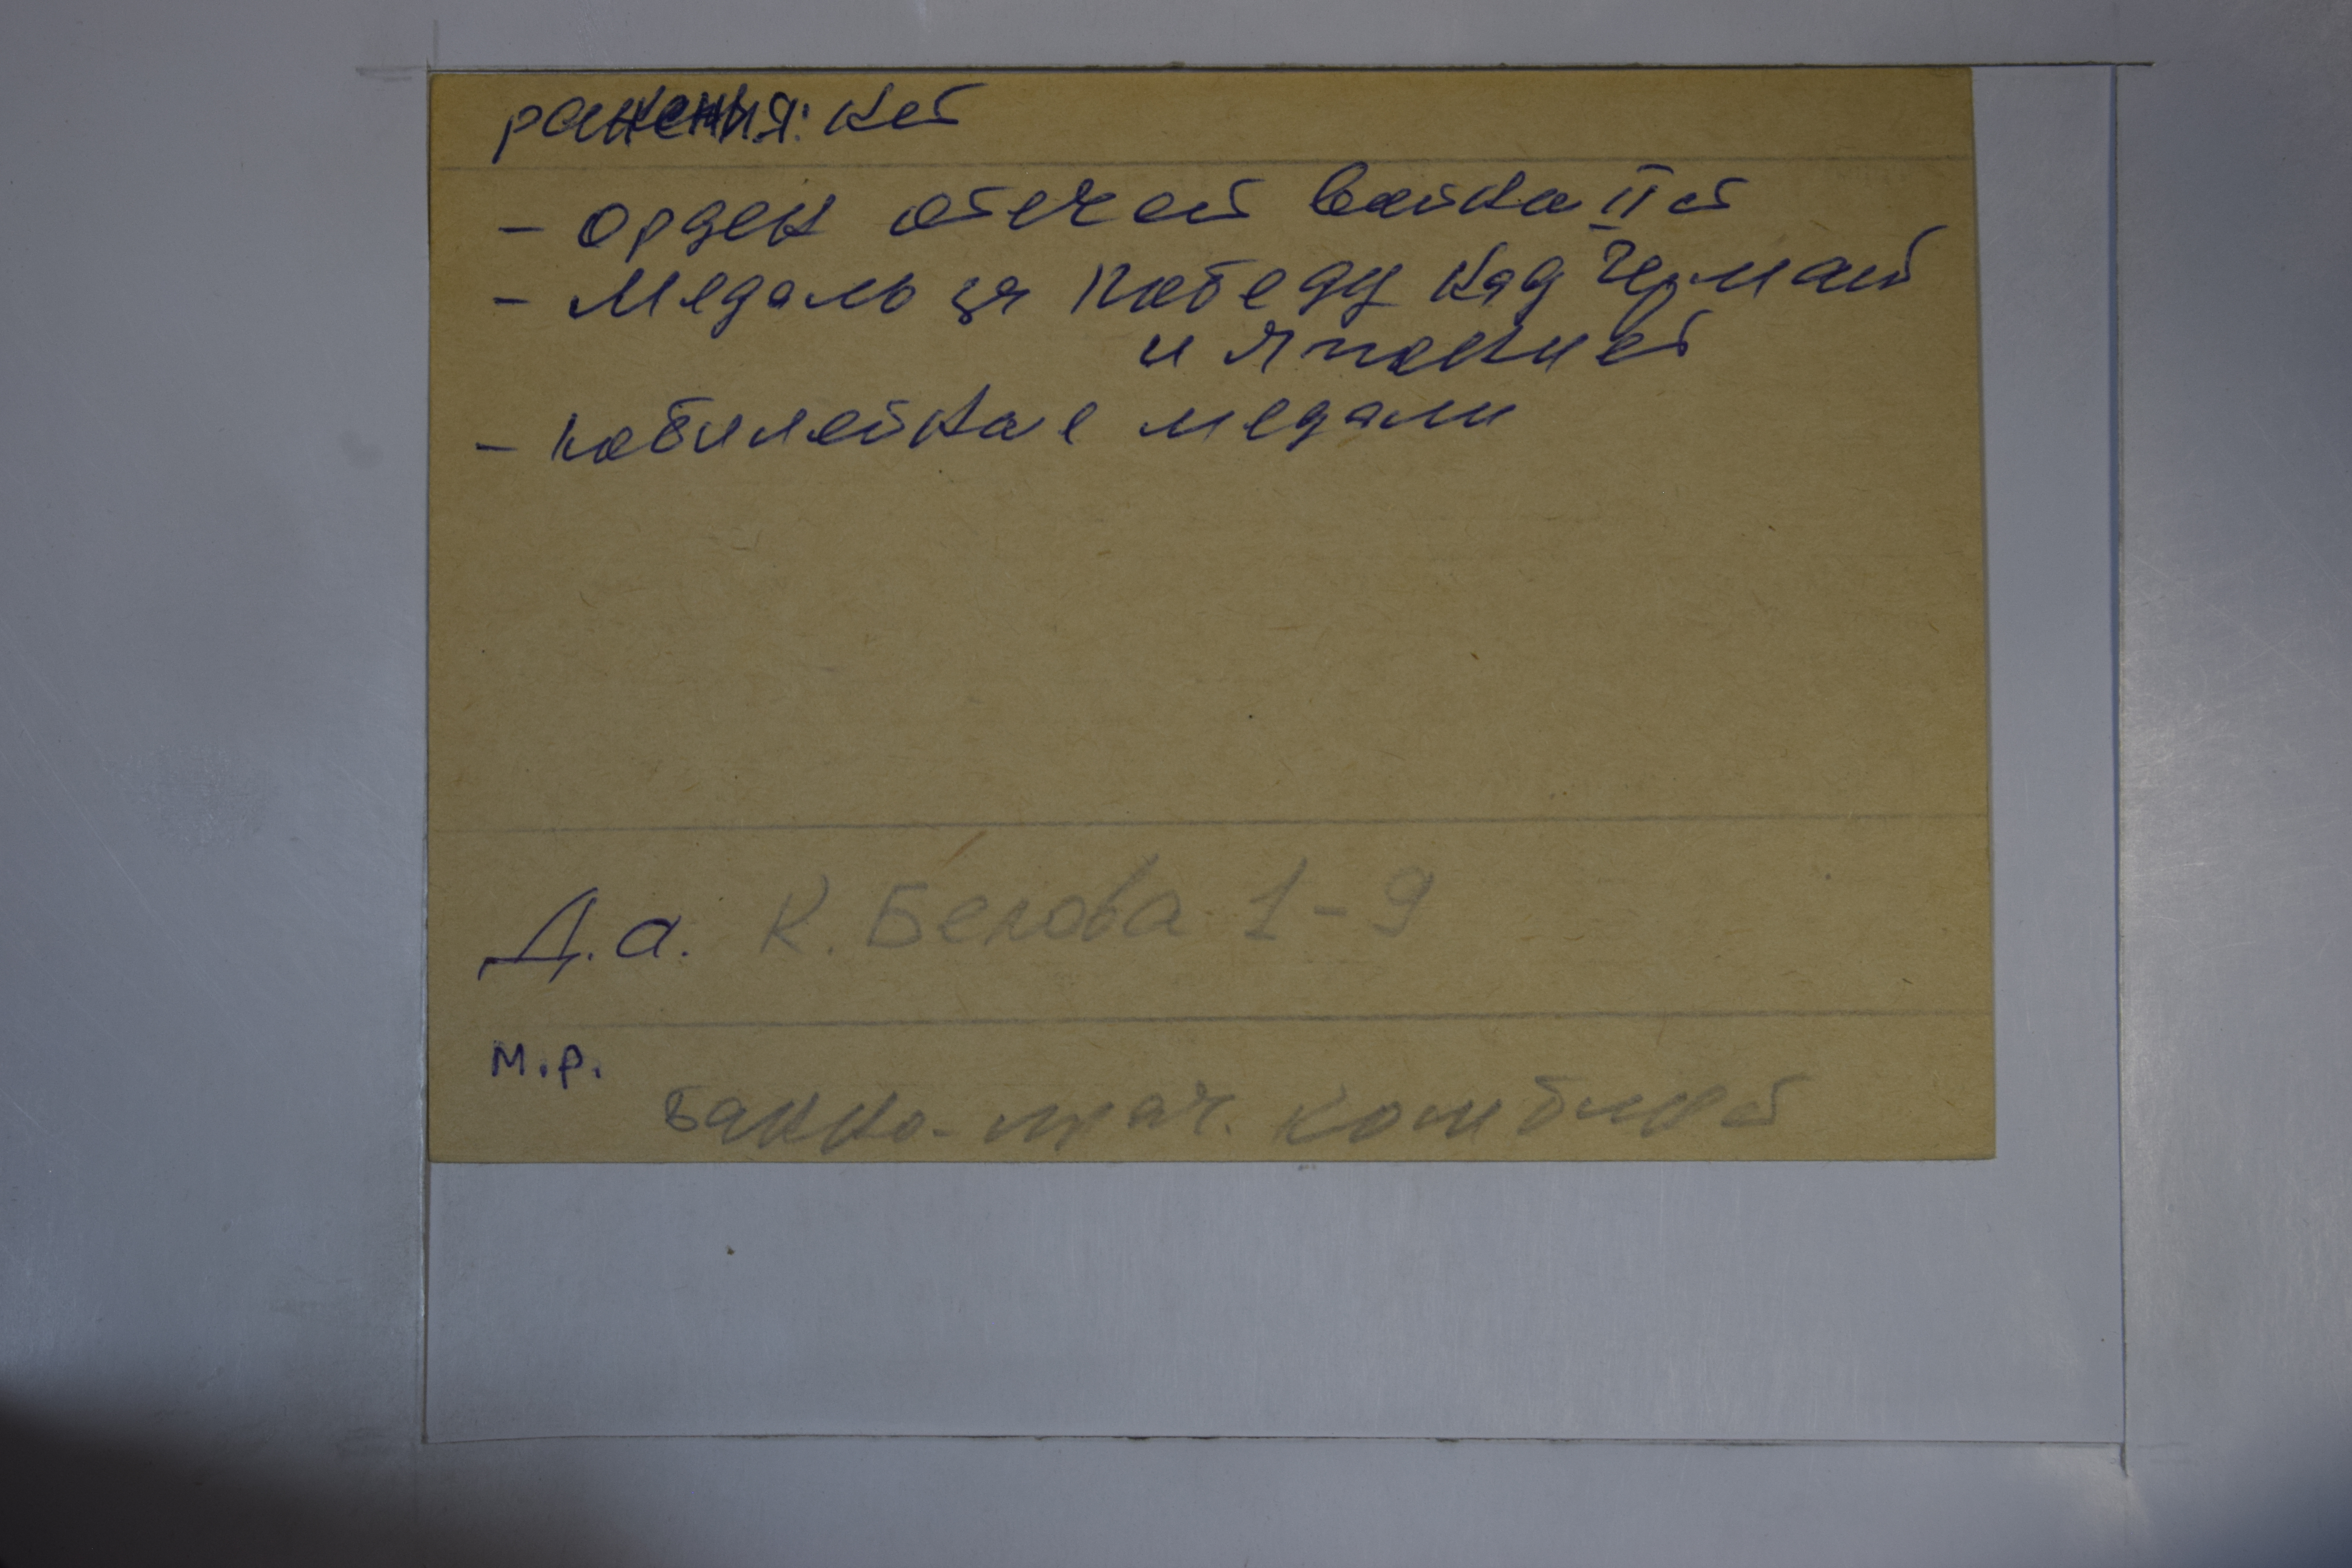 ранения: нет
- орден отечест война II ст
- Медаль за победу над Герман
и Японией
- юбилейные медали
Д.а. К. Белова 1-9
м.р.
Банно-прач. комбинат